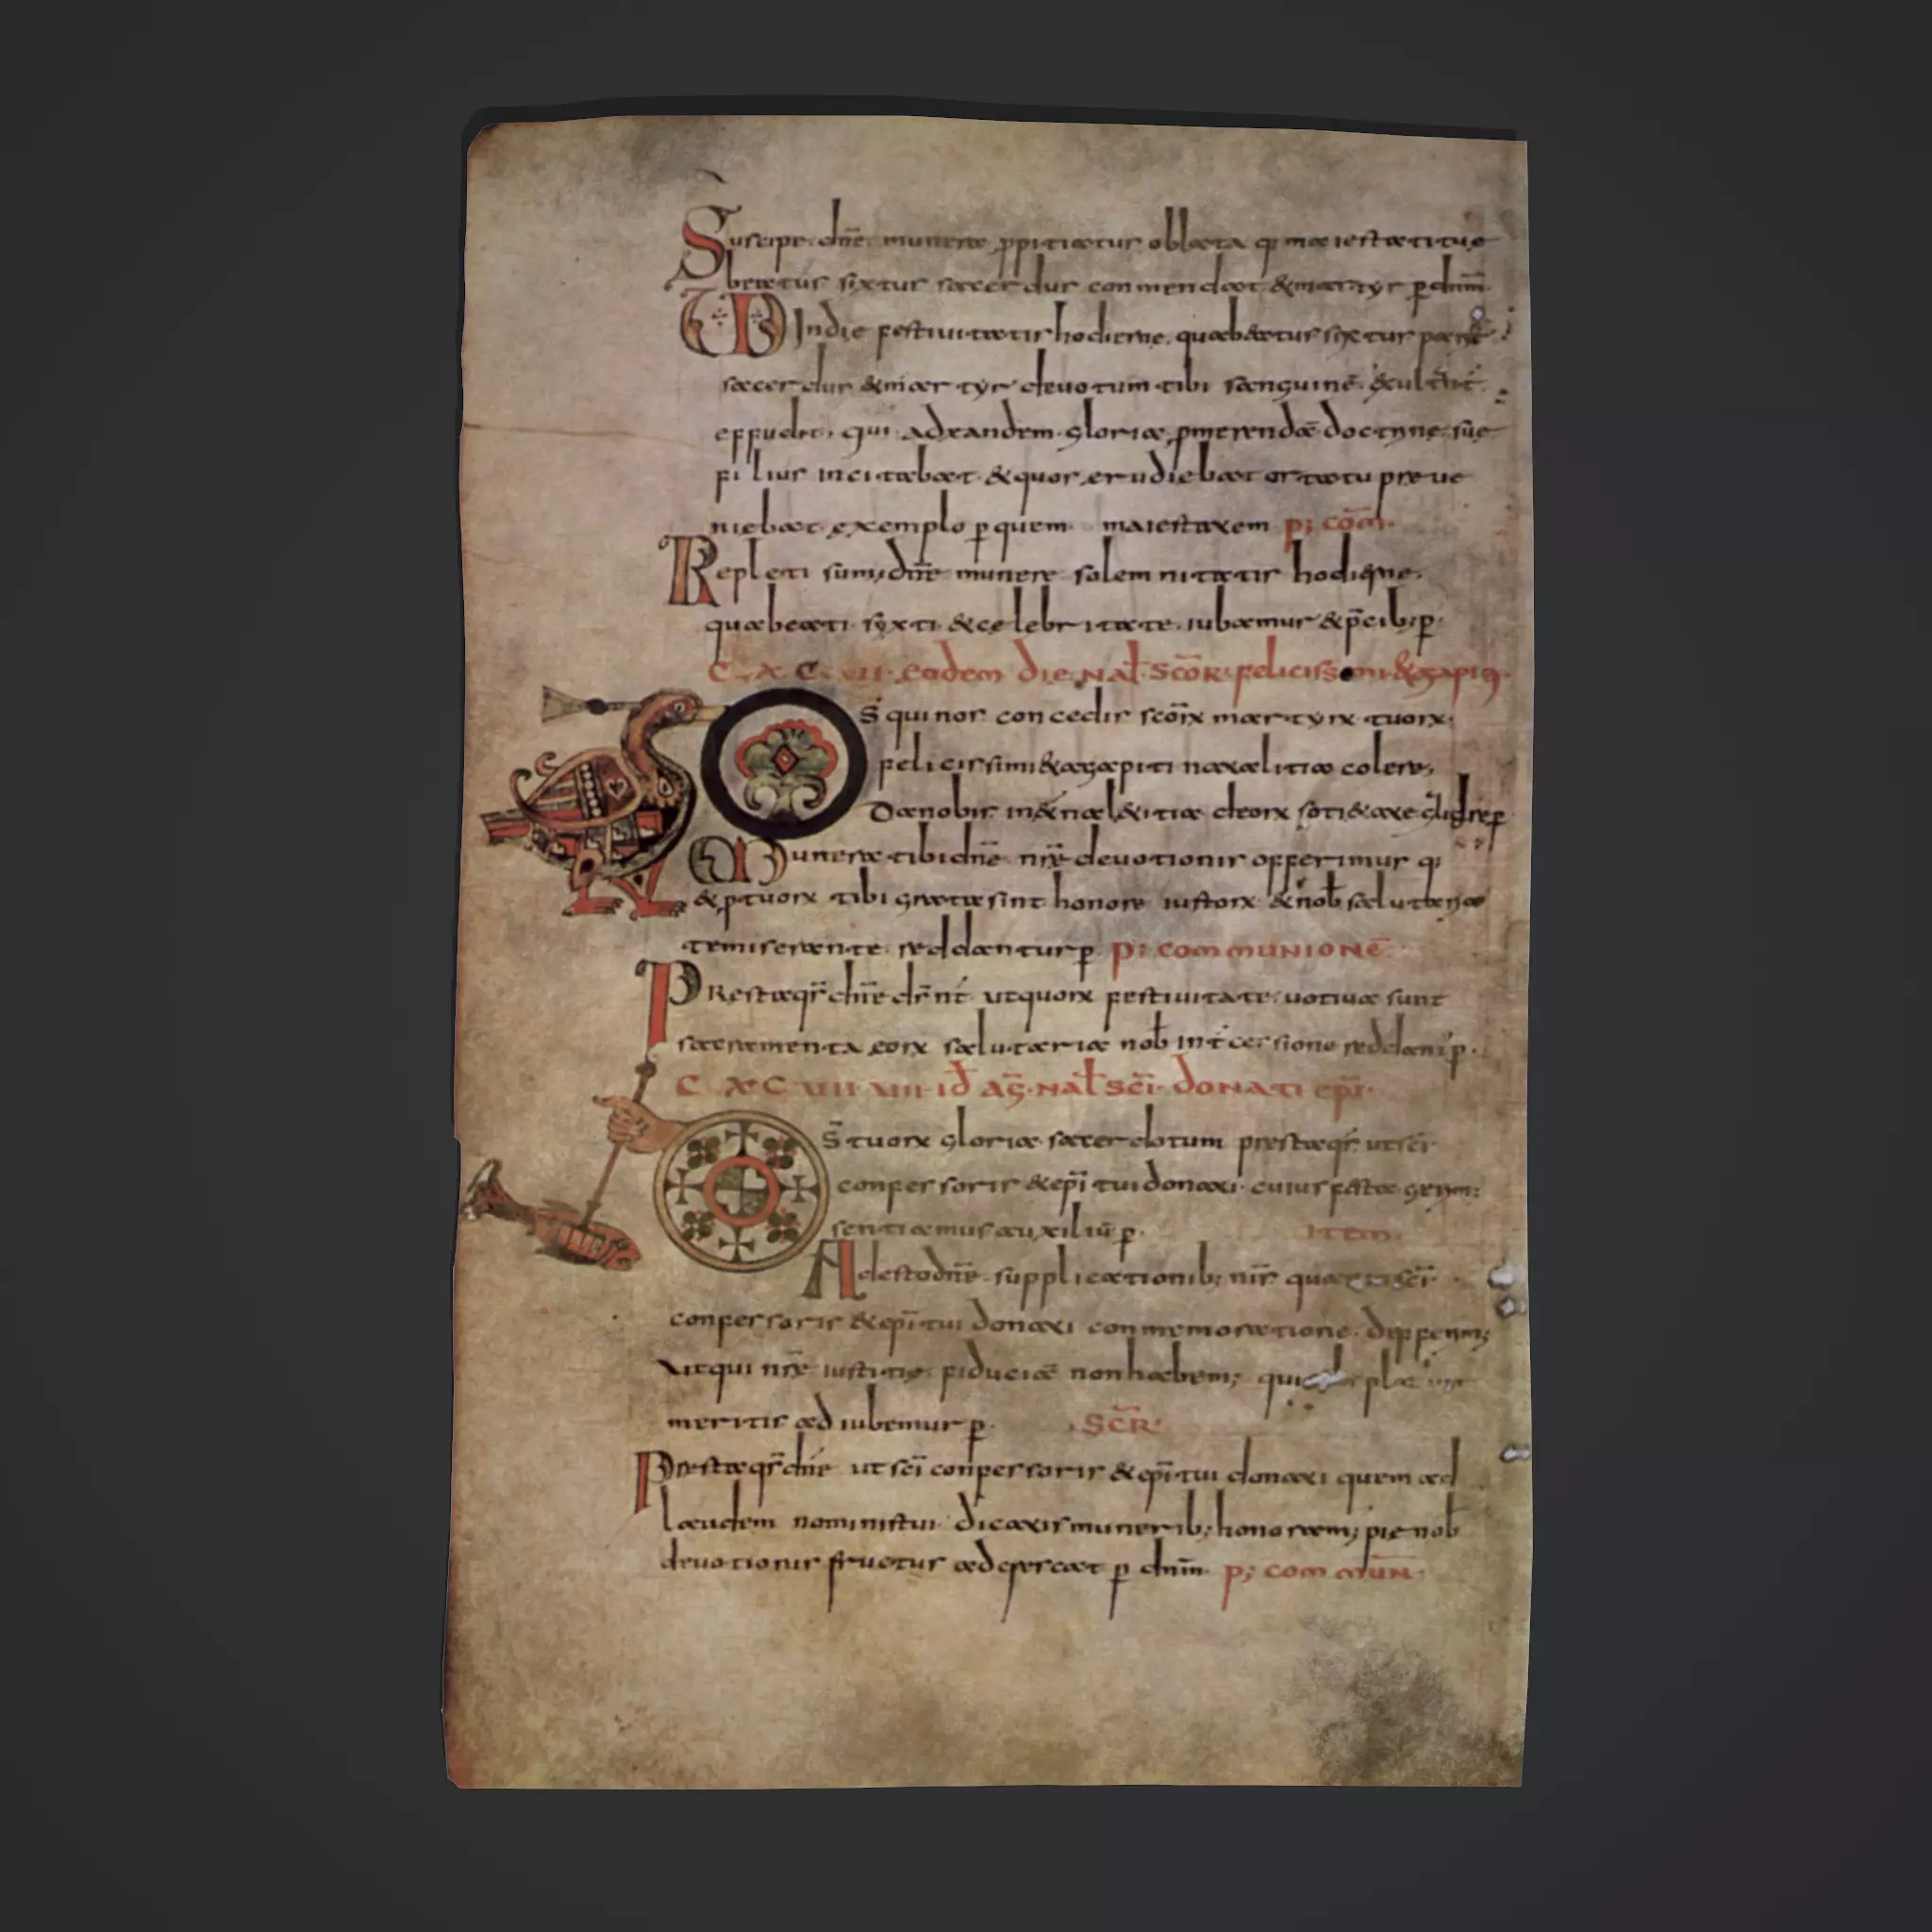 Suscipe dn̄e munera ppitiatur oblata q; maiestatitue
beatus sixtus sacerdus conmendat & martyr p dnm̄
UD Indie festiuitatis hodierne quabeatus sixtus
sacerdus & martyr deuotum tibi sanguinē exultans
effudit qui ad eandem gloriæ pmerendā doctrine sūe
filius incitabat & quos erudiebat ortatu preue
niebat exemplo p quem maiestatem p; cōm
Repleti sum; dn̄e munere solemnitatis hodierne
quabeati syxti & celebritate iubamur & p̄cib; p
C X C VII eodem die nat̄ scōr felicissimi & agapiti
O s̄ qui nos concedis scōrx martyrx tuorx
felicissimi & agapiti natalitia colere
Da nobis in &nal &itia deorx soti&ate
Munera tibi dn̄e nrē deuotionis offerimus q;
& p tuorx tibi grata sint honore iustorx & nob̄
te miserante reddantur p p; communionē
Prestaqs̄ dn̄e ds̄ nr̄ ut quorx festiuitate uotiua sunt
sacramenta eorx salutaria nob̄ int̄cersione reddant p
C X C VIII VIII id̄ aḡ nat̄ scī donati epī
O s̄ tuorx gloria sacerdotum prestaqs̄ ut scī
confersoris & epī tui donati cuius festa gerim;
sentiamus auxiliū p item
Adesto dn̄e supplicationib; nr̄s qua scī
confersoris & epī tui donati conmemoratione deferim;
ut qui nrē iustitie fiduciā non habem; qui
meritis adiubemur p SCR̄
Prestaqs̄ dn̄e ut scī confersoris & epī tui donati quem ad
laudem nominis tui dicatis munerib; honoram; pie nob̄
deuotionis fructus adcrercat p dnm̄ p; commūn